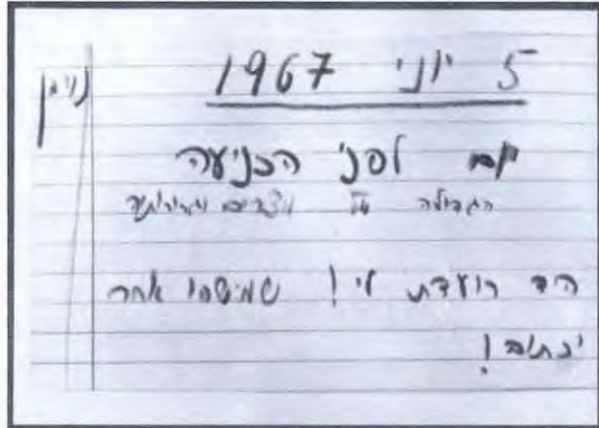 5 יוני 1967
יום לפני הכניעה
הגדולה של מצרים
היד רועדת לי! שמישהו אחר
יכתוב!